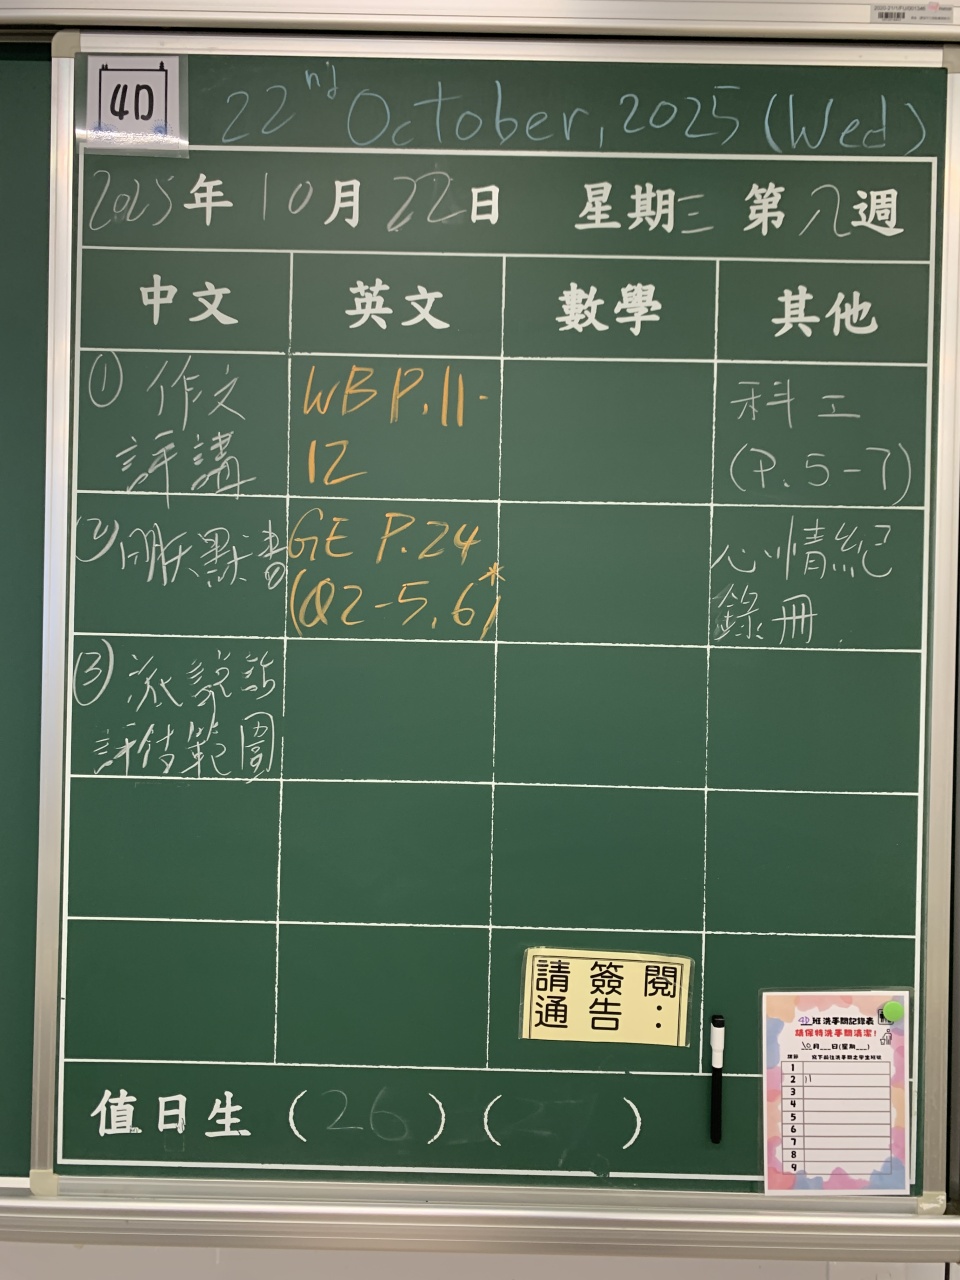 4D
22nd October, 2025 (Wed)
2025年10月22日 星期三 第八週
中文 英文 數學 其他
① 作文
評講
WB P.11-
12
科工
(P.5-7)
② 明天默書
GE P.24
(Q2-5, 6*)
心情紀
錄冊
③ 派說話
評估範圍
請簽閱
通告：
值日生 (26) (27)
4D班洗手間記錄表
請保持洗手間清潔!
10月___日(星期___)
1
2
3
4
5
6
7
8
9